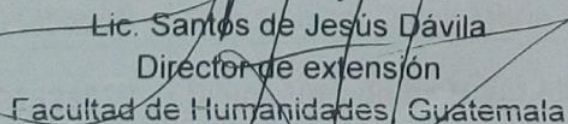 Lic. Santos de Jesús Dávila
Director de extensión
Facultad de Humanidades, Guatemala